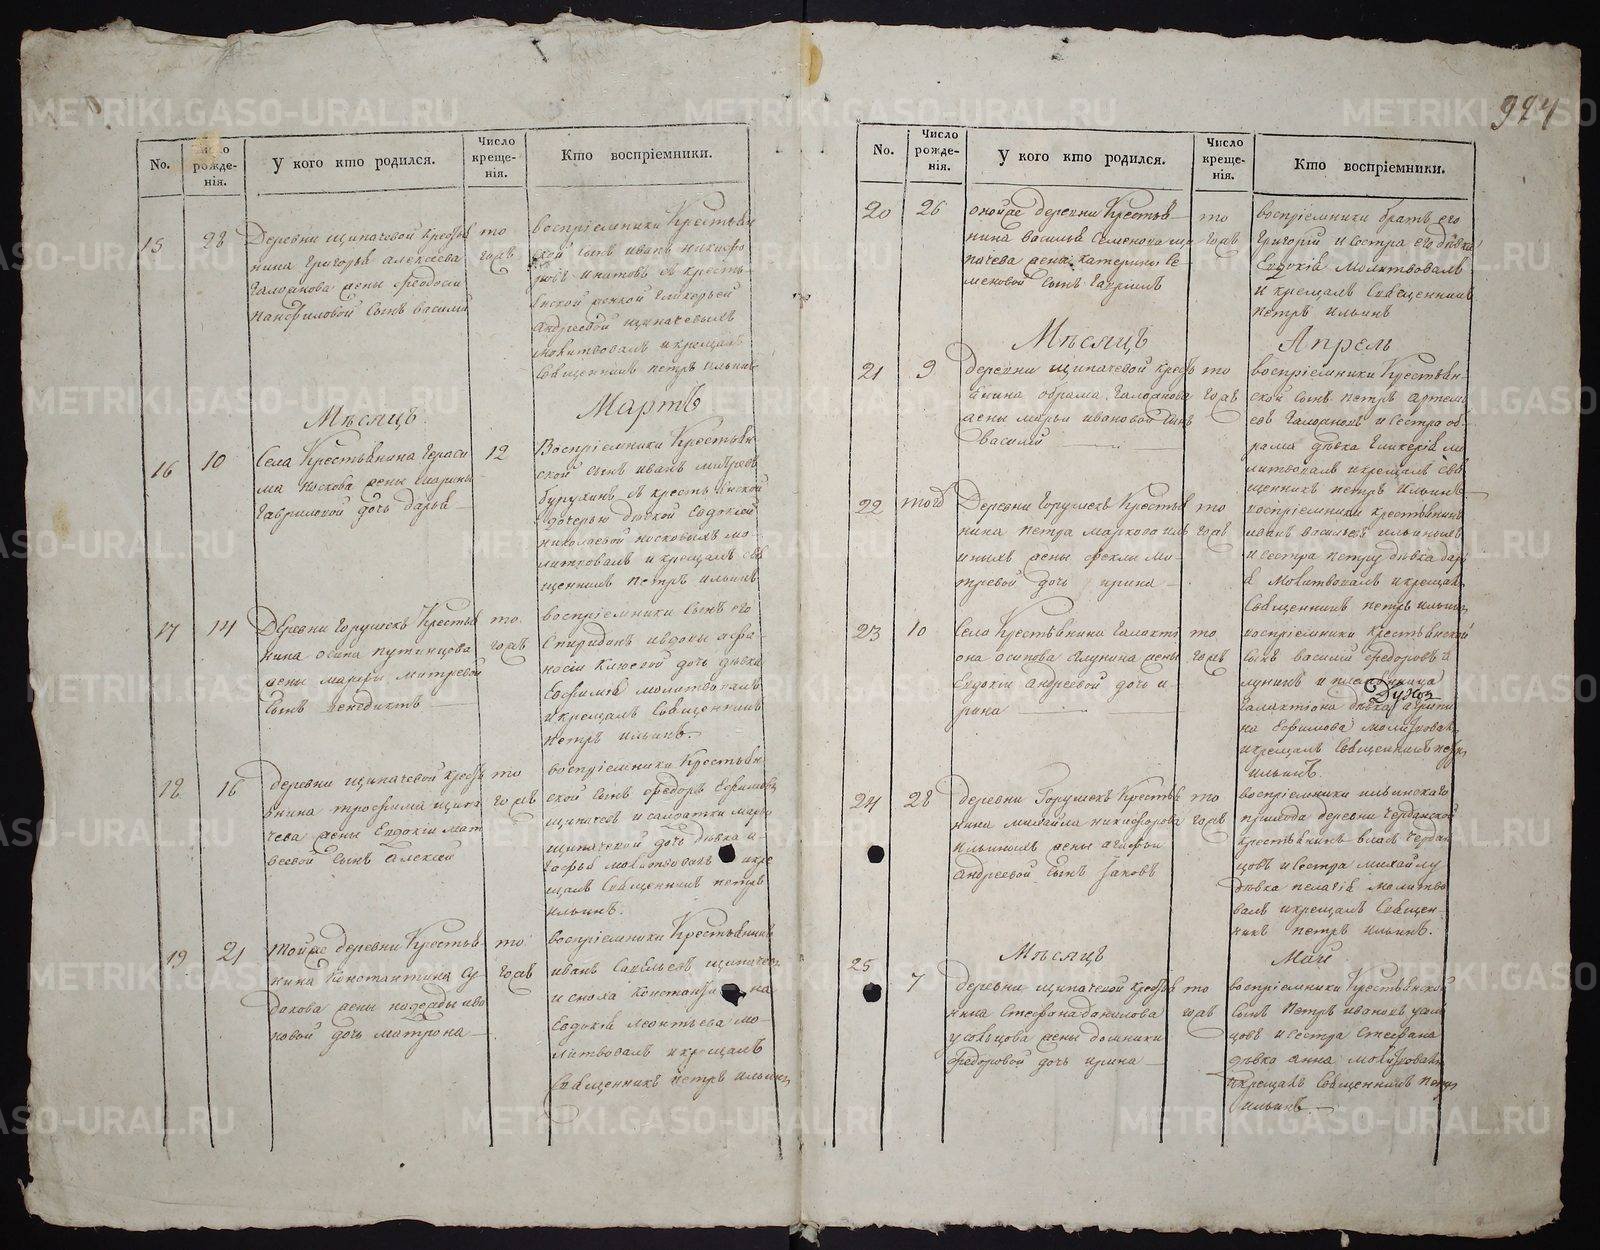 924
No.
Число рожде-нія.
У кого кто родился.
Число креще-нія.
Кто воспріемники.
15
28
Деревни щипачевой Крестья
нина Григорья алексеева
Галанова жены Феодосьи
панфиловой сынъ василий
то
гожъ
воспріемники Крестьян
ской сынъ иванъ никифо
ровъ
женкой гликерьей
андреевой щипачевымъ
молитвовалъ и крещалъ
священникъ петръ ильинъ
Мѣсяцъ
Мартъ
16
10
Села Крестьянина Гераси
ма носкова жены марины
Гавриловой дочь дарья
12
Воспріемники Крестьян
ской сынъ иванъ
дочерью дѣвкой Евдокией
николаевой носковымъ мо
литвовалъ и крещалъ свя
щенникъ петръ ильинъ
17
14
Деревни Горушекъ Крестья
нина осипа путинцова
жены марфы митревой
сынъ венедиктъ
то
гожъ
воспріемники сынъ его
Спиридонъ
дочь дѣвка
Евфимія молитвовалъ
и крещалъ Священникъ
петръ ильинъ.
18
16
деревни щипачевой кресть
янина трофима щипа
чева жены Евдокіи мат
веевой сынъ Алексей
то
гожъ
воспріемники Крестьян
ской сынъ Федоръ Ефимовъ
щипачевъ и салдатки марьи
щипачевой дочь дѣвка а
гафья молитвовалъ и кре
щалъ Священникъ петръ
ильинъ.
19
21
тойже деревни Крестья
нина Константина Су
дакова жены надежды ива
новой дочь матрона
то
гожъ
воспріемники Крестьянинъ
иванъ Савельевъ щипачев
и сноха Констан на
Евдокія леонтьева мо
литвовалъ и крещалъ
Священникъ петръ ильинъ
No.
Число рожде-нія.
У кого кто родился.
Число креще-нія.
Кто воспріемники.
20
26
онойже деревни Крестья
нина василья Семенова щи
пачева жены катерины Се
меновой сынъ Гавриилъ
то
гожъ
воспріемники братъ его
Григорій и сестра его дѣвка
Евдокія Молитвовалъ
и крещалъ Священникъ
петръ ильинъ
Мѣсяцъ
Апрель
21
9
деревни щипачевой кресть
янина абрама Галанова
жены марьи ивановой сынъ
василий
то
гожъ
воспріемники Крестьян
ской сынъ петръ артемь
евъ Галановъ и сестра аб
рама дѣвка Гликерія мо
литвовалъ и крещалъ свя
щенникъ петръ Ильинъ
22
тогож
Деревни Горушекъ Крестья
нина петра маркова иль
иныхъ жены феклы ми
тревой дочь ирина
то
гожъ
воспріемники крестьянинъ
иванъ васильевъ ильиныхъ
и сестра петру дѣвка дарь
я Молитвовалъ и крещалъ
Священникъ петръ ильинъ
23
10
Села Крестьянина Галакти
она осипова Ялунина жены
Евдокіи андреевой дочь и
рина
то
гожъ
воспріемники крестьянской
сынъ василий Федоровъ я
лунинъ и племянница
Галактіона дѣвка агрипи
на Ефимова молитвовалъ
и крещалъ Священникъ петръ
ильинъ.
24
28
деревни Горушекъ Крестья
нина михайла никифорова
ильиныхъ жены агафьи
андреевой сынъ Іаковъ
то
гожъ
воспріемники ильинскаго
прихода деревни Черданской
крестьянинъ власъ Чердан
цовъ и сестра михайлу
дѣвка пелагія молитво
валъ и крещалъ Священ
никъ петръ ильинъ.
Мѣсяцъ
Май
25
7
деревни щипачевой кресть
янина Стефана данилова
усольцова жены домники
Федоровой дочь ирина
то
гожъ
воспріемники Крестьянской
сынъ Петръ ивановъ усоль
цовъ и сестра Стефана
дѣвка анна молитвовалъ
и крещалъ Священникъ петръ
ильинъ.